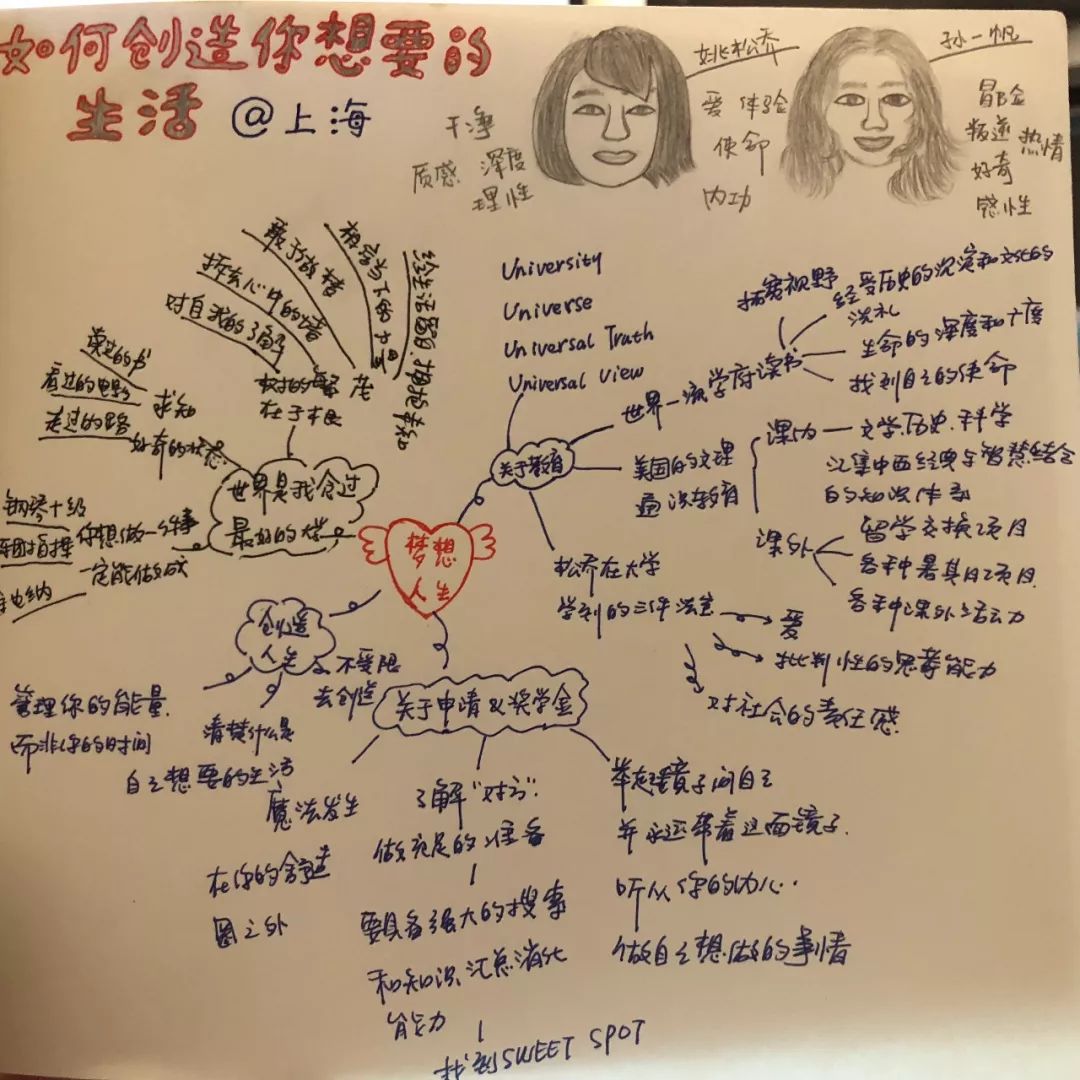 如何创造你想要的
生活 @上海
干净
质感 深度
理性
姚松乔
爱 体验
使命
内功
孙一帆
冒险
叛逆 热情
好奇
感性
梦想
人生
关于教育
University
Universe
Universal Truth
Universal View
世界一流学府读书
拓宽视野
经受历史的沉淀和文化的
洗礼
生命的深度和广度
找到自己的使命
美国的文理
通识教育
课内 — 文学.历史.科学
汇集中西经典与智慧结合
的知识体系
课外
留学交换项目
各种暑期项目
各种课外活动
松乔在大学
学到的三件法宝
爱
批判性的思考能力
对社会的责任感
关于申请&奖学金
举起镜子问自己
并永远带着这面镜子.
听从你的内心..
做自己想做的事情
了解"对方".
做充足的准备
要具备强大的搜索
和知识汇总消化
能力
找到SWEET SPOT
魔法发生
在你的舒适
圈之外
创造
人生
不受限
去创造
清楚什么是
自己想要的生活
管理你的能量.
而非你的时间
世界是我念过
最好的大学
树的繁茂
在于根
对自我的了解
拆去心中的墙
敢于放弃
相信当下的力量
给生活留白.拥抱未知
求知
好奇的状态
读过的书
看过的电影
走过的路
你想做一件事
一定能做成
钢琴十级